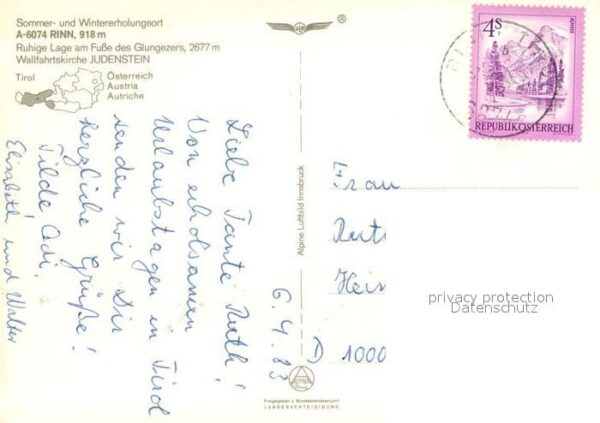 Sommer- und Wintererholungsort
A-6074 RINN, 918 m
Ruhige Lage am Fuße des Glungezers, 2677 m
Wallfahrtskirche JUDENSTEIN
Tirol
Österreich
Austria
Autriche
®
6.4.83
Liebe Tante Ruth!
Von erholsamen
Urlaubstagen in Tirol
senden wir Dir
herzliche Grüße!
Tilde Adi!
Elisabeth und Walter
Alpine Luftbild Innsbruck
Freigegeben v. Bundesministerium f.
LANDESVERTEIDIGUNG
4S
REPUBLIK ÖSTERREICH
Frau
Ruth
Hein
D 1000
privacy protection
Datenschutz